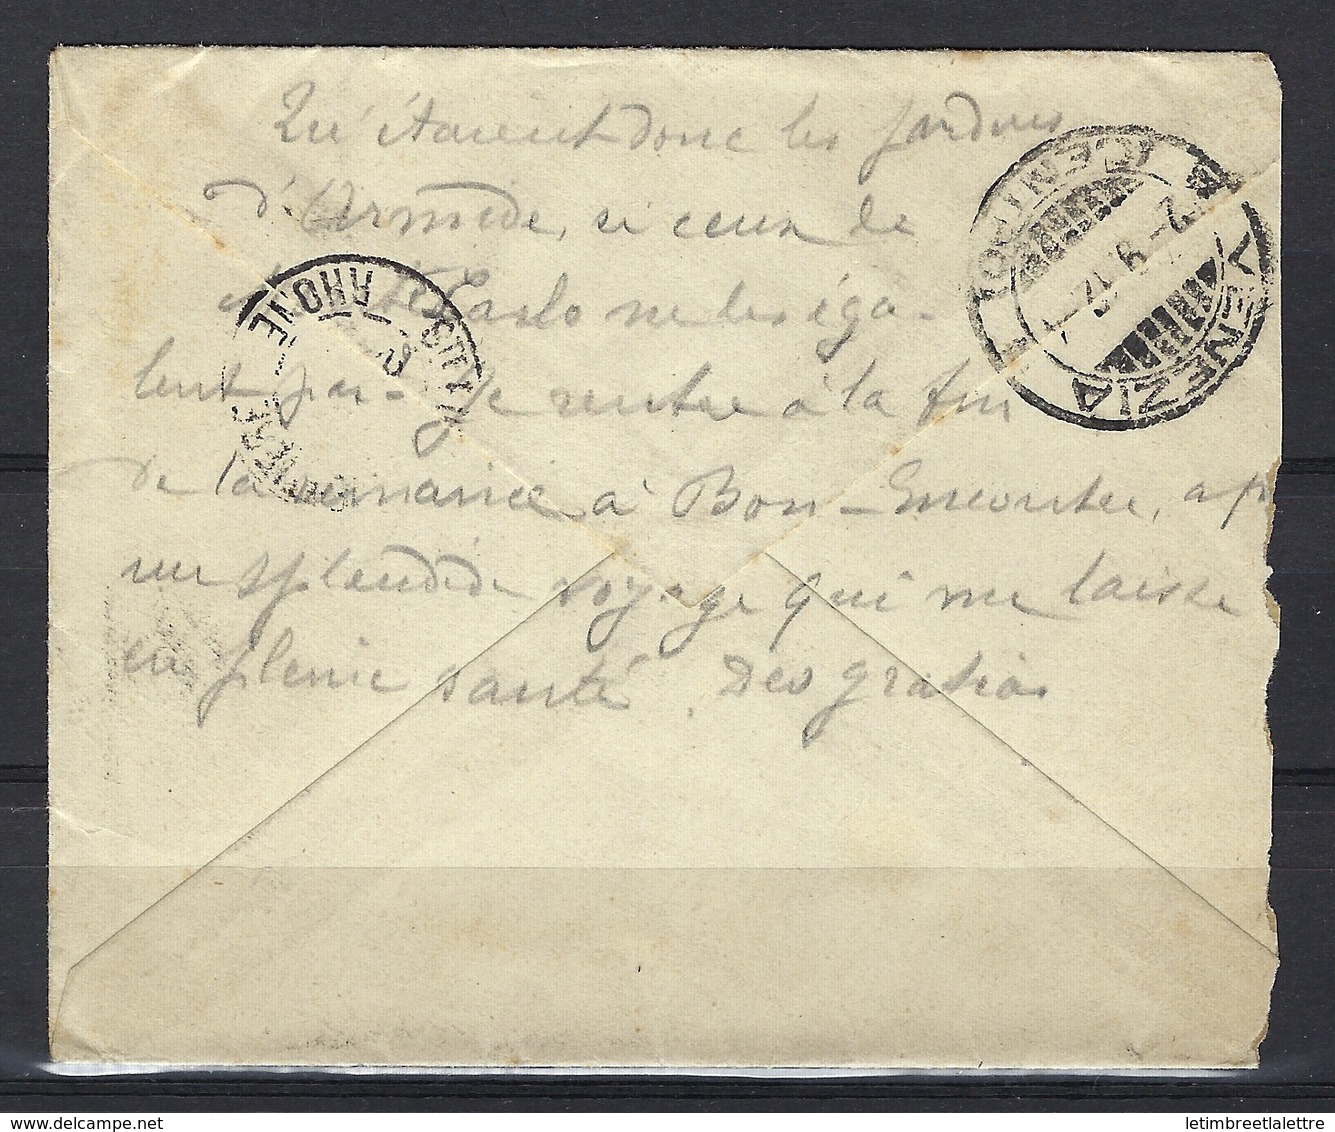 Qu'étaient donc les jardins
d'Armide, si ceux de
Monte Carlo ne les éga-
lent pas - Je rentre à la fin
de la semaine à Bon-Encontre, ap
un splendide voyage qui me laisse
en pleine santé. Deo gratias
VENEZIA
CENTRO
RHONE
www.delcampe.net
letimbreetlalettre